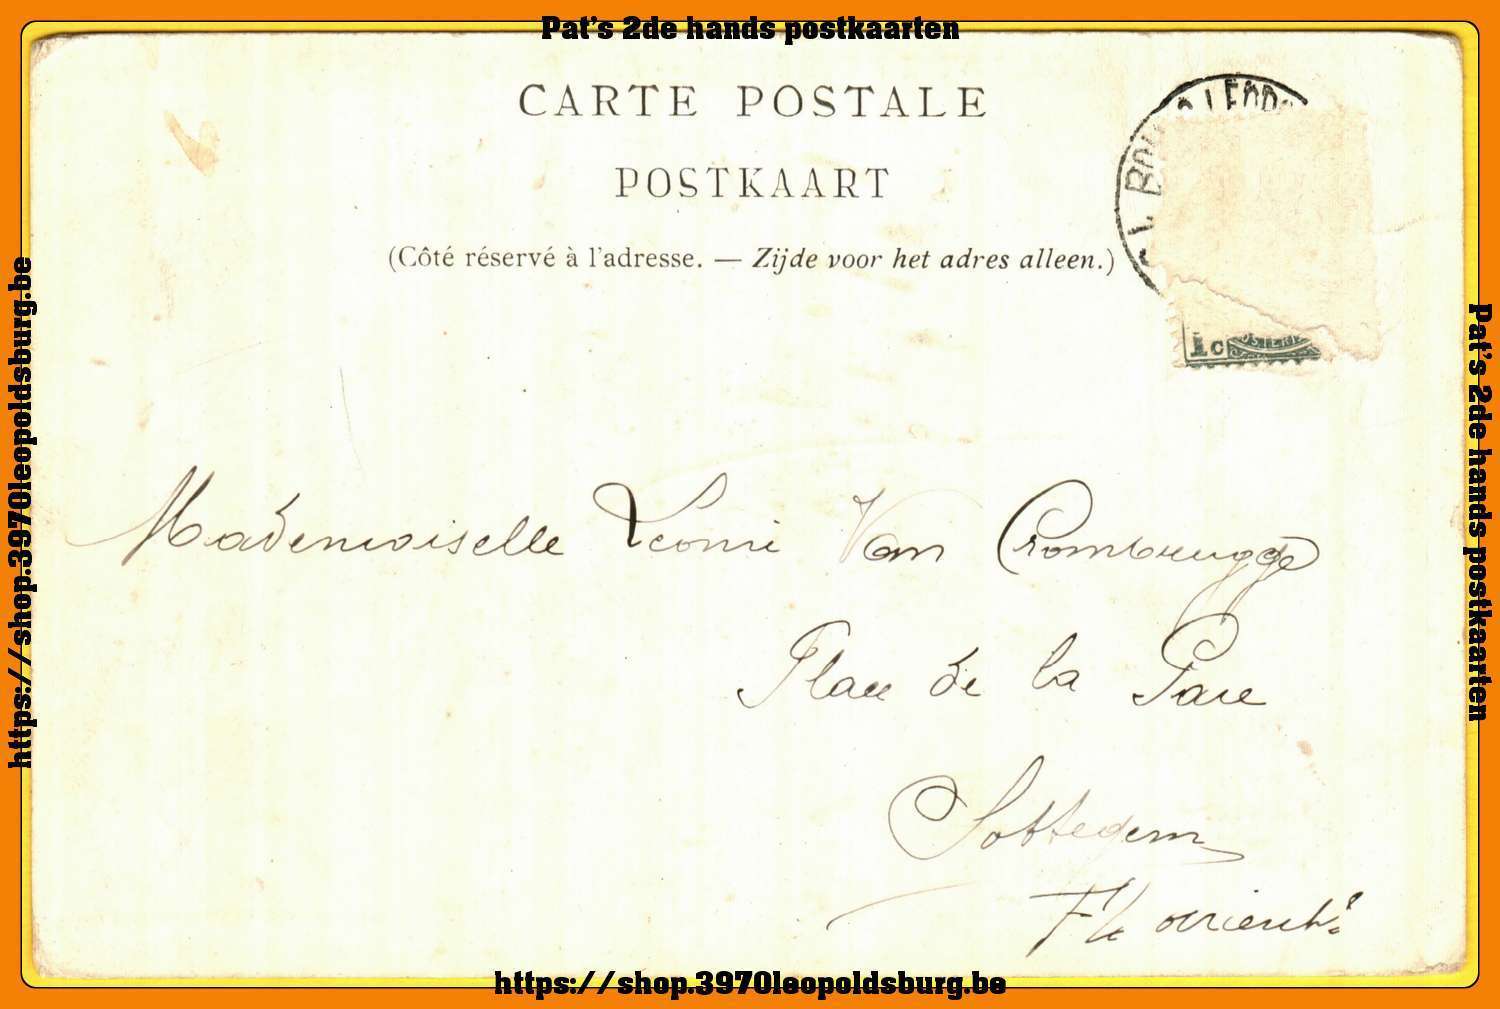 Pat's 2de hands postkaarten
CARTE POSTALE
POSTKAART
(Côté réservé à l'adresse. — Zijde voor het adres alleen.)
1c
Mademoiselle Leonie Van Crombrugge
Place de la Gare
Sottegem
Fl. orient.
https://shop.3970leopoldsburg.be
https://shop.3970leopoldsburg.be
Pat's 2de hands postkaarten